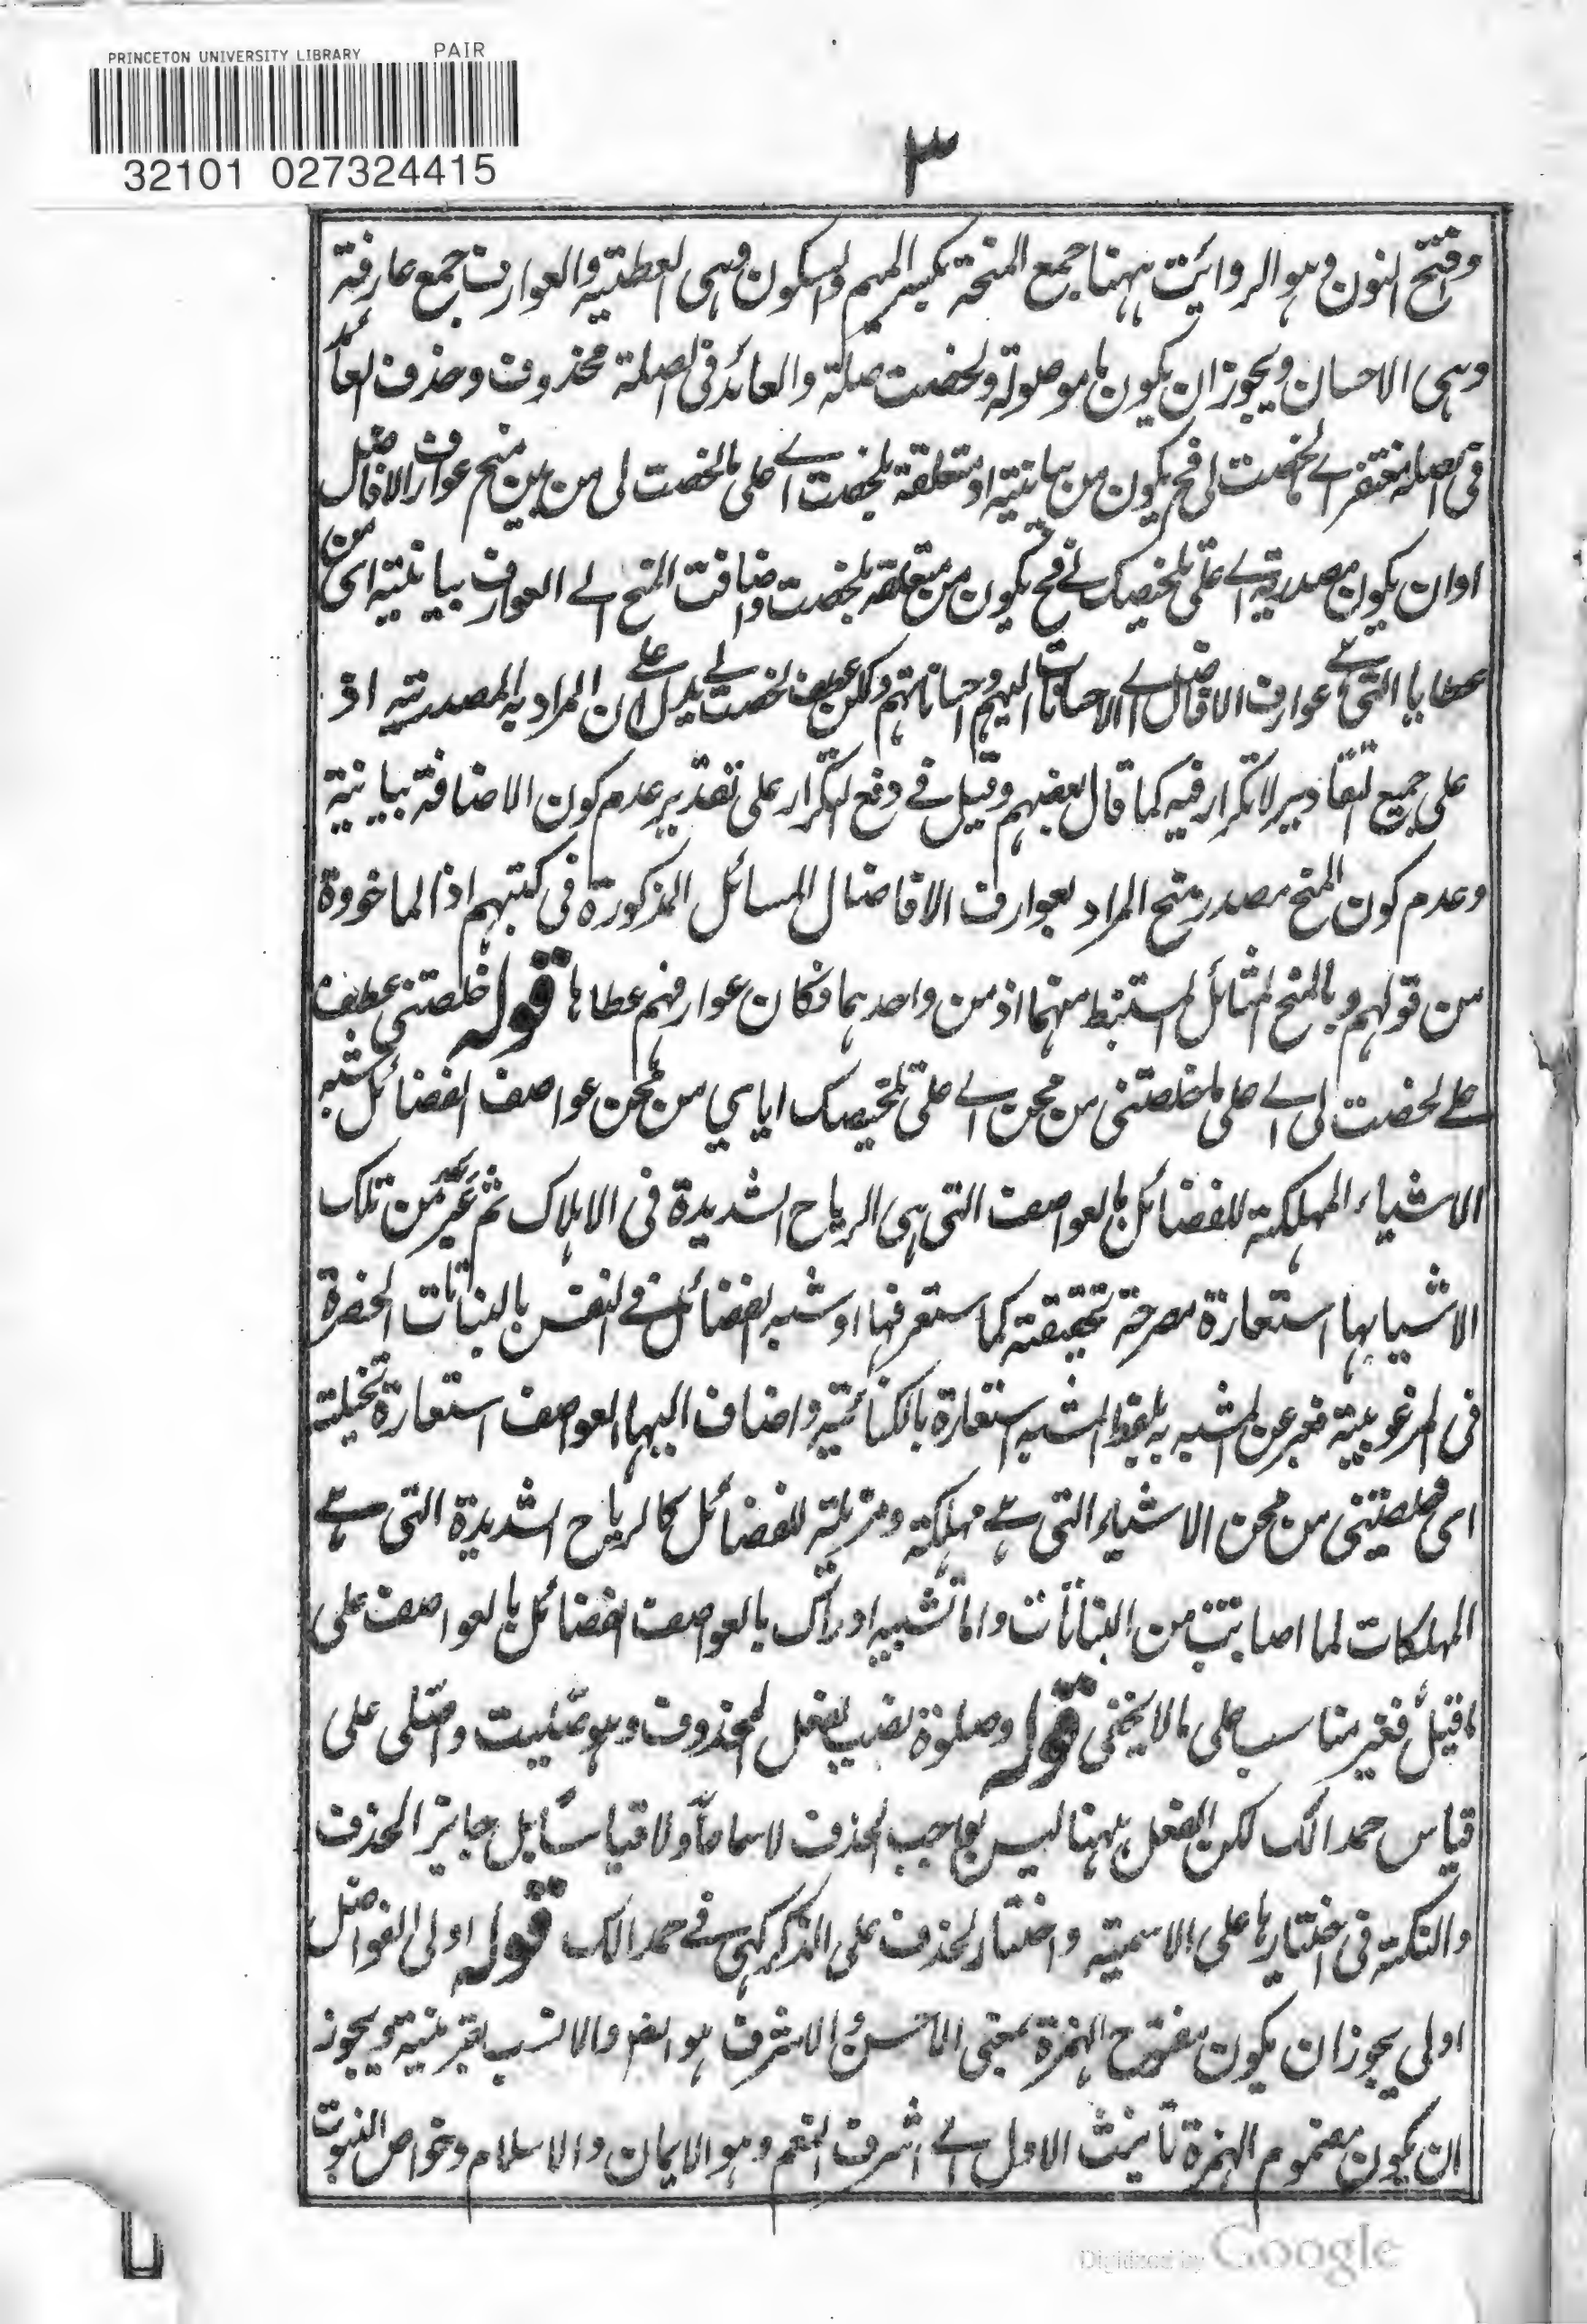 PRINCETON UNIVERSITY LIBRARY PAIR
32101 027324415
٣
وفتح النون وهو الروايت ههنا جمع المنحة بكسر الميم والسكون وهى العطية والعوارف جمع عارفة
وهى الاحسان ويجوز ان يكون ما موصولة ولخصت صلة والعائد فى الصلة محذوف وحذف العائد
فى الصلة مغتفر اے لخصت لى فح يكون من بيانية او متعلقة بلخصت اے على ما لخصت لى من بين منح عوارف الافاضل
او ان يكون مصدرية اے على تلخيصك لے فح يكون من متعلقة بلخصت واضافت المنح الے العوارف بيانية اى من
عطايا التى هے عوارف الافاضل اے الاحسانات اليهم واحساناتهم ولكن عطف لخصت لے على يدل ان المراد به المصدرية او
على جميع التقادير لا تكرار فيه كما قال بعضهم وقيل فے دفع التكرار على تقدير عدم كون الاضافة بيانية
وعدم كون المنح مصدر منح المراد بعوارف الافاضل المسائل المذكورة فى كتبهم اذ الماخوذة
من قولهم وبالمنح المسائل المستنبط منهما اذ من واحدهما فكان عوارفهم عطاها قوله خلصتنى عطف
علے لخصت لى اے على ما خلصتنى من محن اے على تلخيصك اياي من محن عواصف الفضائل شبه
الاشياء المهلكة للفضائل بالعواصف التى هى الرياح الشديدة فى الاهلاك ثم عبر من تلك
الاشيا بها استعارة مصرحة تحقيقة كما ستعرفها او شبه الفضائل فے النفس بالنباتات الخضرة
فى المرغوبية فعبر عن المشبه به بلفظ المشبه استعارة بالكنائية واضاف اليها العواصف استعارة تخيلية
اى خلصتنى من محن الاشياء التى هے مهلكة ومزيلة للفضائل كالرياح الشديدة التى هے
المهلكات لما اصابت من النباتات واما تشبيه ادراك بالعواصف الفضائل بالعواصف على
ما قيل فغير مناسب على ما لا يخفى قوله وصلوة نصب بفعل المحذوف وهو صليت واصلى على
قياس حمدا لك لكن الفعل ههنا ليس بواجب الحذف لا سماعاً ولا قياساً بل جايز الحذف
والنكتة فى اختيارها على الاسمية واختار الحذف على الذكر كهى فے حمدا لك قوله اولى الفواضل
اولى يجوز ان يكون مفتوح الهمزة بمعنى الاحسن والاشرف هو الفم والانسب بقرينية ويجوز
ان يكون مضموم الهمزة تأنيث الاول اے اشرف النعم وهو الايمان والاسلام وخواص النبوت
Digitized by Google